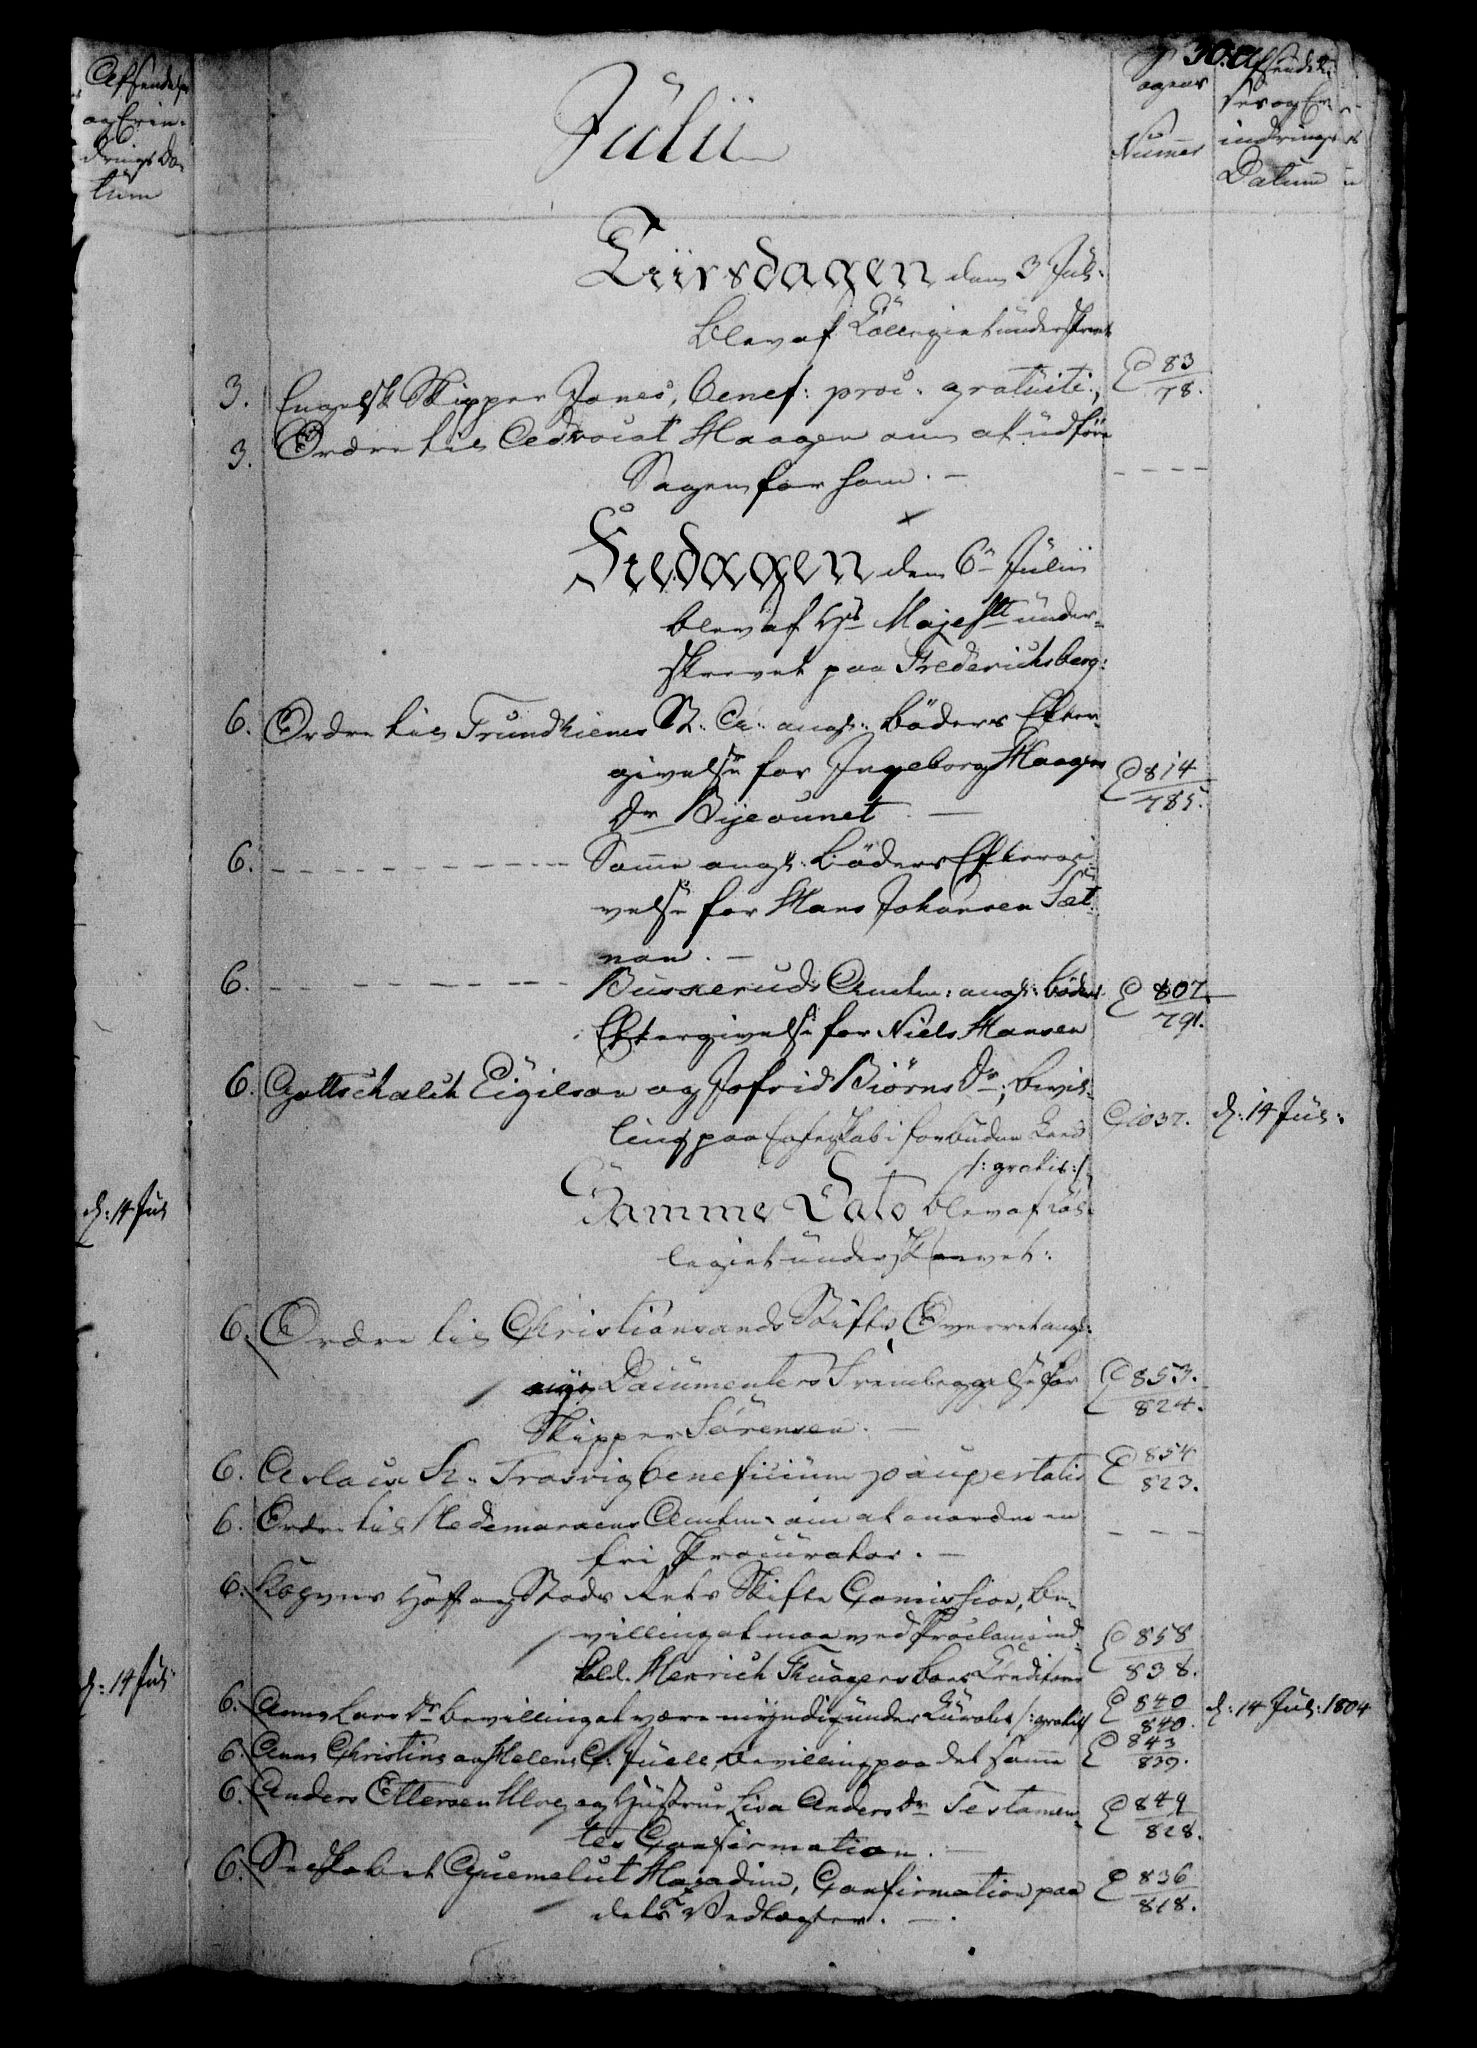 Afsendelses
og Erin-
drings Da-
tum
30.a
Julii
Sagens
Numer
Afsendel-
ses og Er-
indrings
Datum
Tiirsdagen den 3 Jul:
blev af Collegiet underskrevet
3. Engelsk Skipper Jones, benef: proc: gratuiti, E 83/78.
3. Ordre til Advocat Haagen om at udføre
Sagen for ham. —
Fredagen den 6te Julii
blev af Hs Majestt under-
skrevet paa Frederichsberg:
6. Ordre til Trundhiems St. A: ang: bøders Efter-
givelse for Ingeborg Haagens
Dr Bijeounet — E 814/785.
6. — Samme ang: bøders Eftergi-
velse for Hans Johansen Sæt-
nan. —
6. — Buskeruds Amtm: ang: bøders E 807/791.
Eftergivelse for Niels Hansen
6. Gottschalck Eigilson og Jofrid Biørns Dr, bevil-
ling paa Egteskab i forbuden Leed G 1037. d: 14 Jul:
/: gratis :/
Samme Dato blev af Col-
legiet underskrevet:
d: 14 Jul
6. Ordre til Christiansands Stifts Overret ang:
nye Documenters Fremlæggelse for E 853./824.
Skipper Sørensen. —
6. Aslach Sr. Trosvig beneficium paupertatis E 854/823.
6. Ordre til Hedemarkens Amtm: om at anordne en
fri Procurator. —
6. Kbhvns Hof og Stads Rets Skifte Comission, be-
villing at maa ved Proclama ind-
kald. Henrich Creditorer E 858/838.
d: 14 Jul
6. Anna Lars Dr bevilling at være myndig under Curator /: gratis E 840/840. d: 14 Jul: 1804
6. Anna Christine og Helene C. Juell, bevilling paa det samme E 843/839.
6. Anders Ellersen og Hustrue Lisa Anders Dr Testamen-
tes Confirmation. — E 849/828.
6. Selskabet Confirmation paa E 836/818.
dets Vedtægter. —